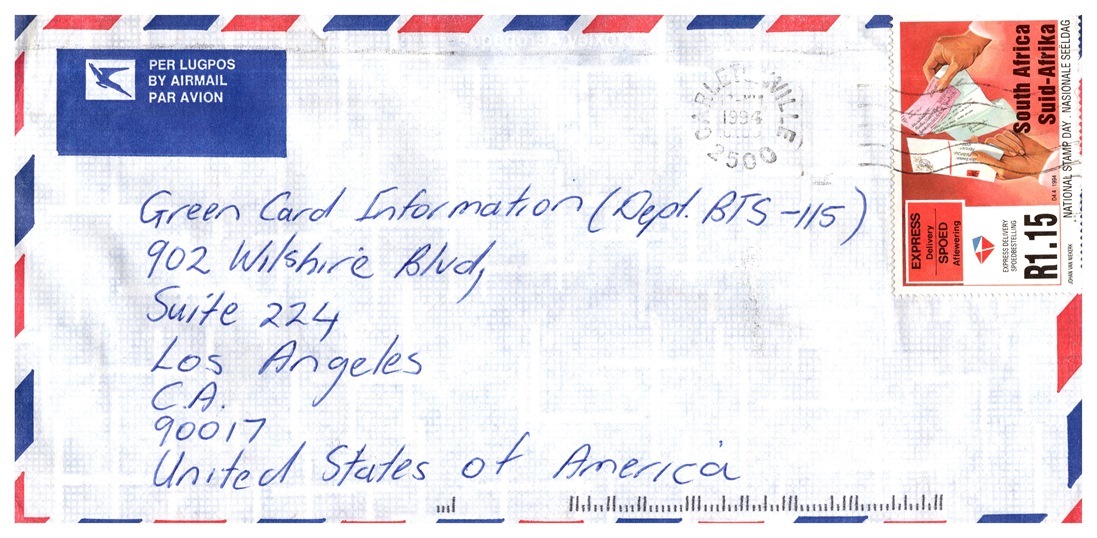 PER LUGPOS
BY AIRMAIL
PAR AVION
CARLETONVILLE
1994
2500
South Africa
Suid-Afrika
NATIONAL STAMP DAY . NASIONALE SEËLDAG
04 4 1994
EXPRESS
Delivery
SPOED
Aflewering
EXPRESS DELIVERY
SPOEDBESTELLING
R1.15
JOHAN VAN NIEKERK
Green Card Information (Dept. BTS-115)
902 Wilshire Blvd,
Suite 224
Los Angeles
C.A.
90017
United States of America